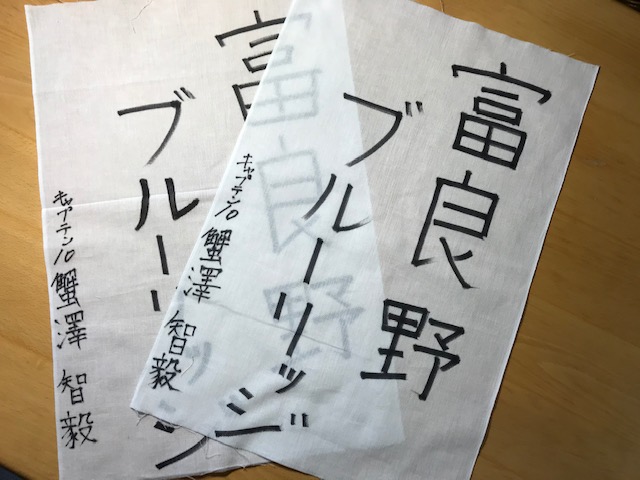 富良野
ブルーリッジ
キャプテン10 蟹澤 智毅
富良野
ブルーリッジ
キャプテン10 蟹澤 智毅